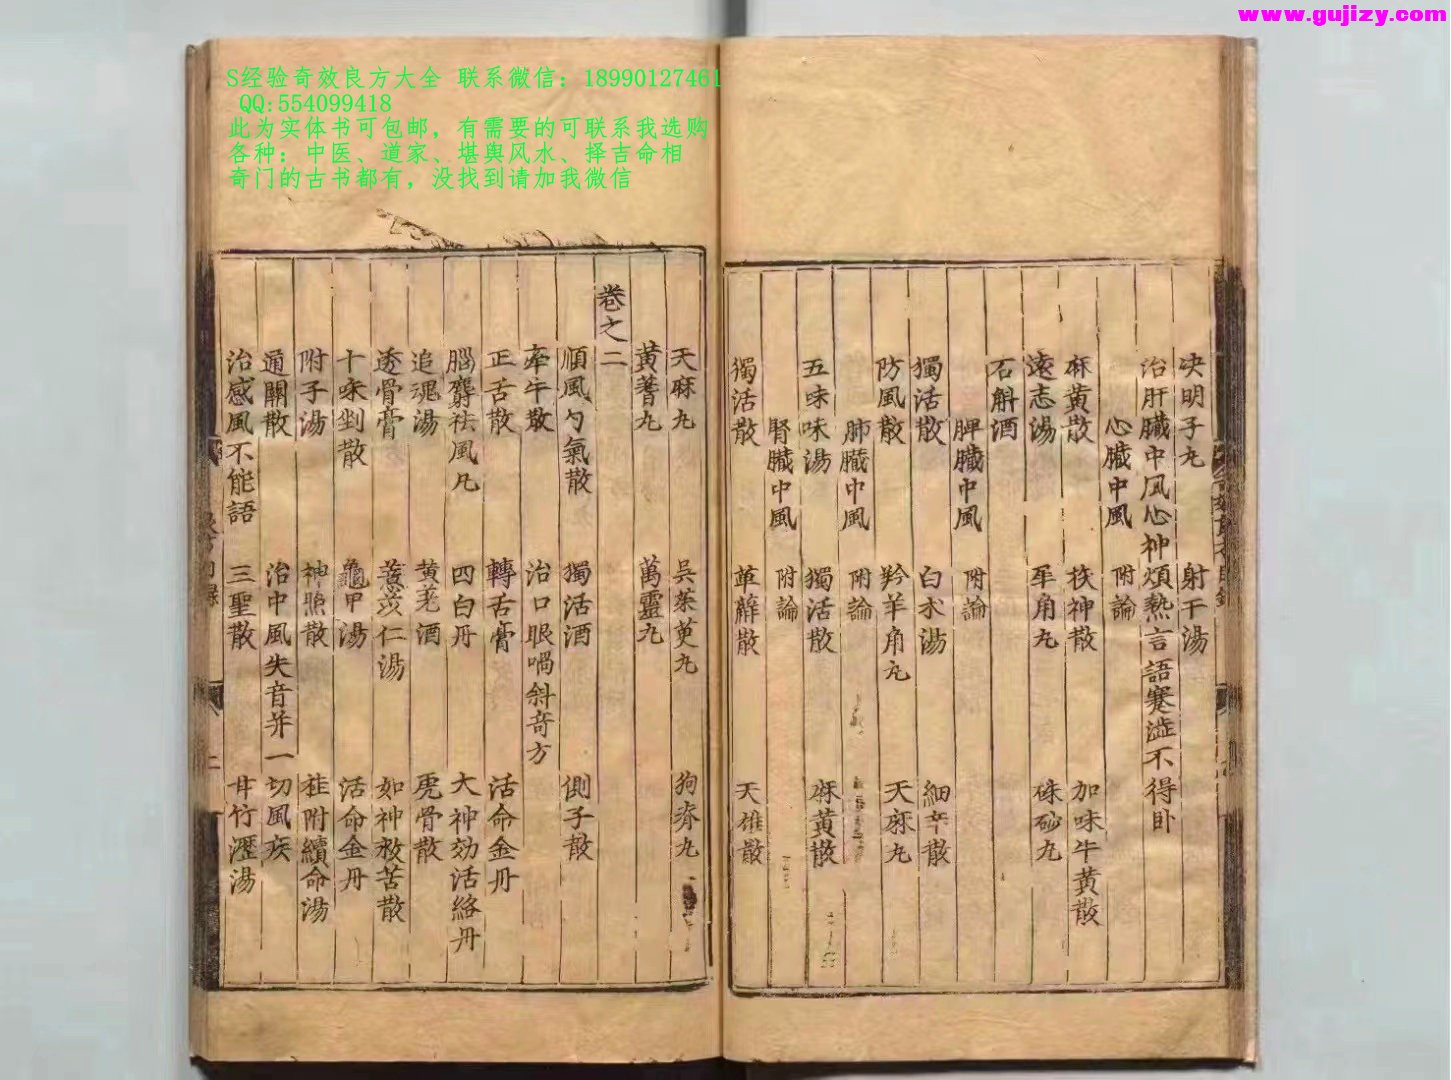 www.gujizy.com
S经验奇效良方大全 联系微信：18990127461
QQ:554099418
此为实体书可包邮，有需要的可联系我选购
各种：中医、道家、堪舆风水、择吉命相
奇门的古书都有，没找到请加我微信
決明子丸 射干湯
治肝臟中风心神煩熱言語蹇澁不得卧
心臟中風 附論
麻黄散 茯神散 加味牛黄散
遠志湯 犀角丸 硃砂丸
石斛酒
脾臟中風 附論
獨活散 白术湯 細辛散
防風散 羚羊角丸 天麻丸
肺臟中風 附論
五味湯 獨活散 麻黄散
腎臟中風 附論
獨活散 萆薢散 天雄散
天麻丸 吳茱萸丸 狗脊丸
黄蓍丸 萬靈丸
卷之二
順風勻氣散 獨活酒 側子散
牽牛散 治口眼喎斜奇方
正舌散 轉舌膏 活命金丹
腦麝祛風凡 四白丹 大神効活絡丹
追魂湯 黄芪酒 虎骨散
透骨膏 薏苡仁湯 如神救苦散
十味剉散 龜甲湯 活命金丹
附子湯 神照散 桂附續命湯
通關散 治中風失音并一切風疾
治感風不能語 三聖散 甘竹瀝湯